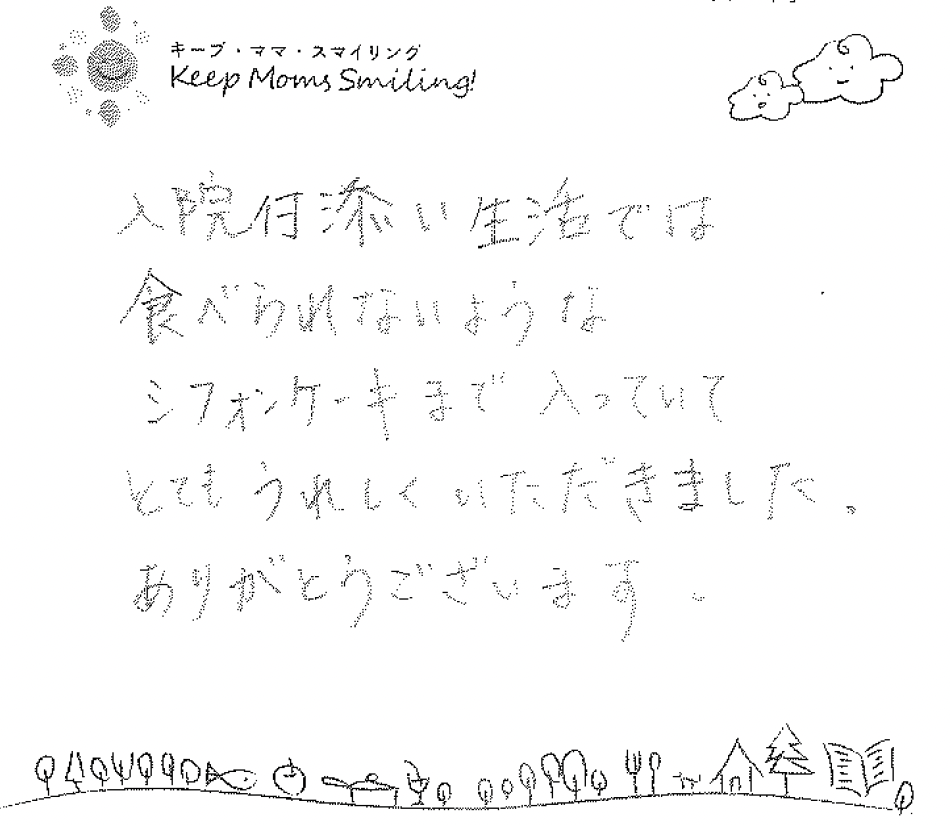 キープ・ママ・スマイリング
Keep Moms Smiling!
入院付添い生活では
食べられないような
シフォンケーキまで入っていて
とてもうれしくいただきました。
ありがとうございます。